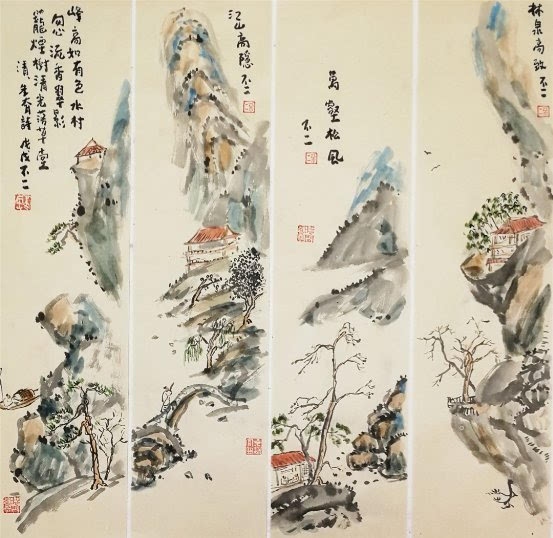 林泉高致 不二
萬壑松風
不二
江山高隐 不二
峰高如有色水村
流香翠影
籠煙樹清光落草堂
清 戊戌 不二